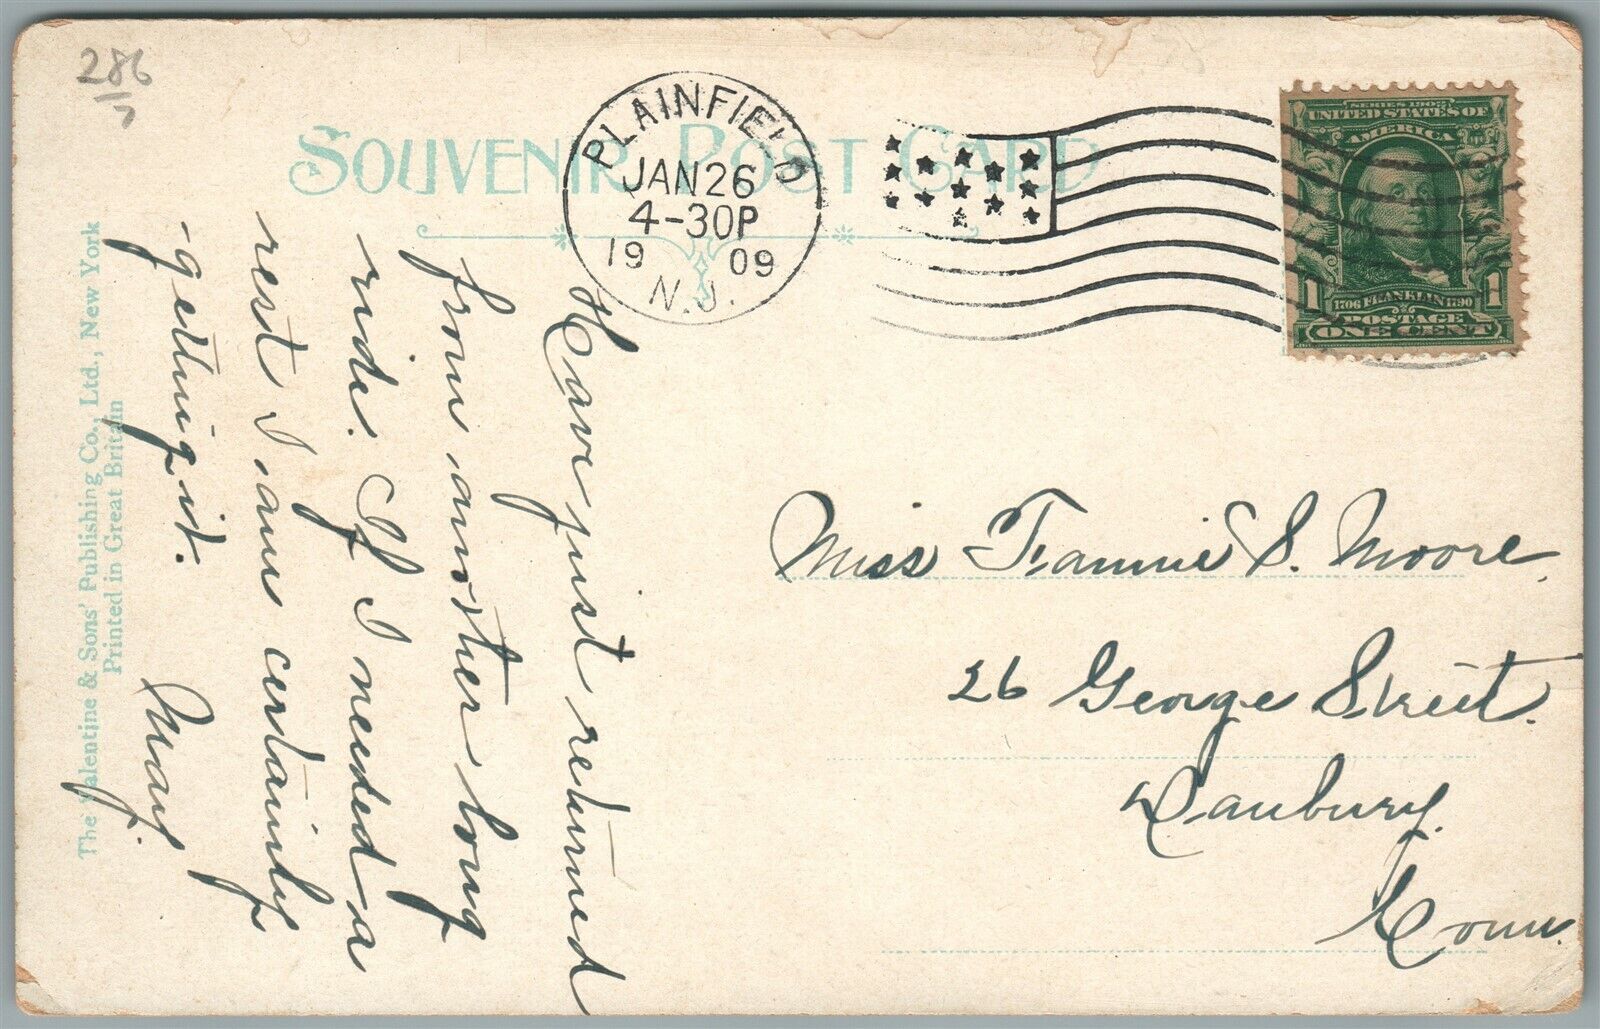 286
7
SOUVENIR POST CARD
PLAINFIELD
JAN 26
4-30P
19 09
N.J.
SERIES 1902
UNITED STATES OF
AMERICA
1 1706 FRANKLIN 1790 1
POSTAGE
ONE CENT
Have just returned
from another long
ride. If I needed a
rest I am certainly
-getting it.
May.
Miss Fannie S. Moore,
26 George Street.
Danbury.
Conn.
The Valentine & Sons' Publishing Co., Ltd., New York
Printed in Great Britain